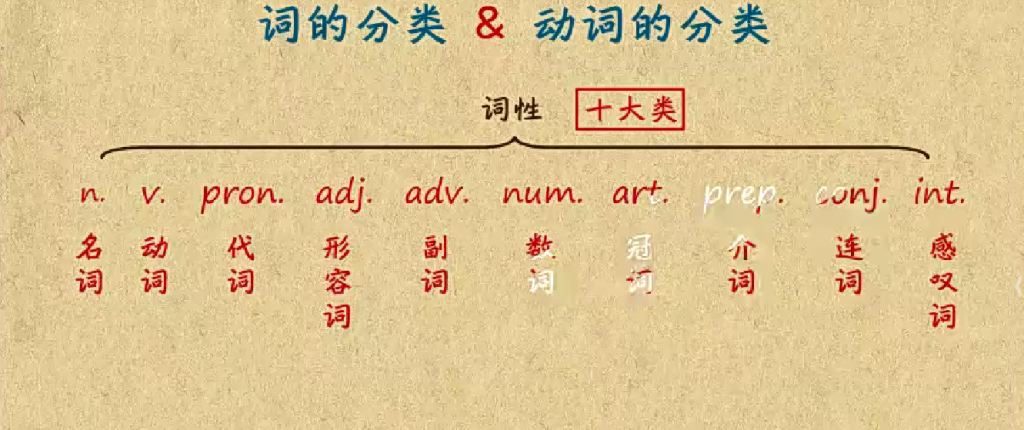 词的分类 & 动词的分类
词性 十大类
n. v. pron. adj. adv. num. art. prep. conj. int.
名词 动词 代词 形容词 副词 数词 冠词 介词 连词 感叹词